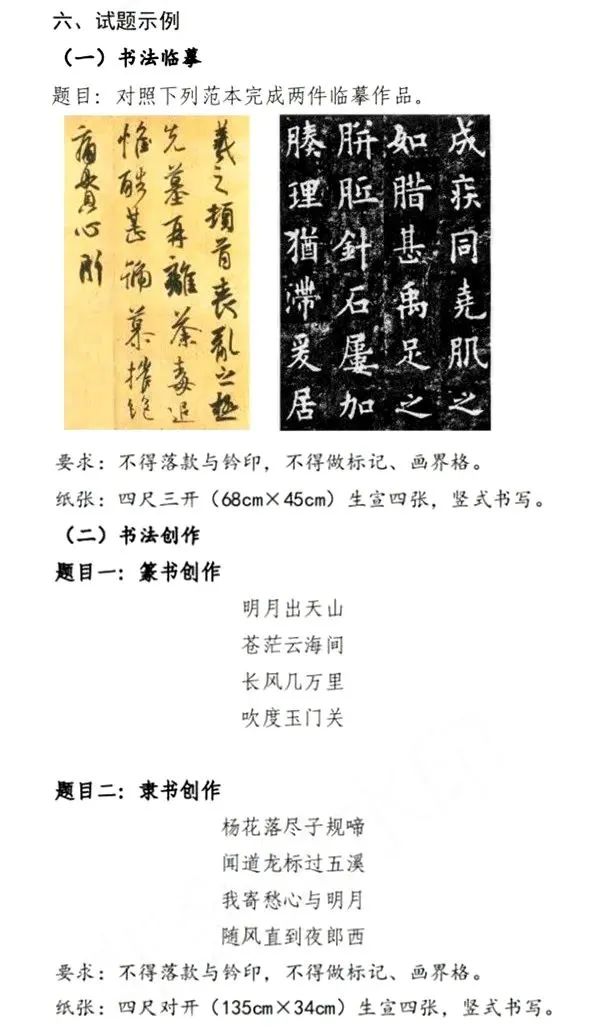 六、试题示例
（一）书法临摹
题目：对照下列范本完成两件临摹作品。
羲之頓首喪亂之極
先墓再離荼毒追
惟酷甚號慕摧絕
痛貫心肝
成疾同堯肌之
如腊甚禹足之
胼胝針石屢加
腠理猶滯爰居
要求：不得落款与钤印，不得做标记、画界格。
纸张：四尺三开（68cm×45cm）生宣四张，竖式书写。
（二）书法创作
题目一：篆书创作
明月出天山
苍茫云海间
长风几万里
吹度玉门关
题目二：隶书创作
杨花落尽子规啼
闻道龙标过五溪
我寄愁心与明月
随风直到夜郎西
要求：不得落款与钤印，不得做标记、画界格。
纸张：四尺对开（135cm×34cm）生宣四张，竖式书写。